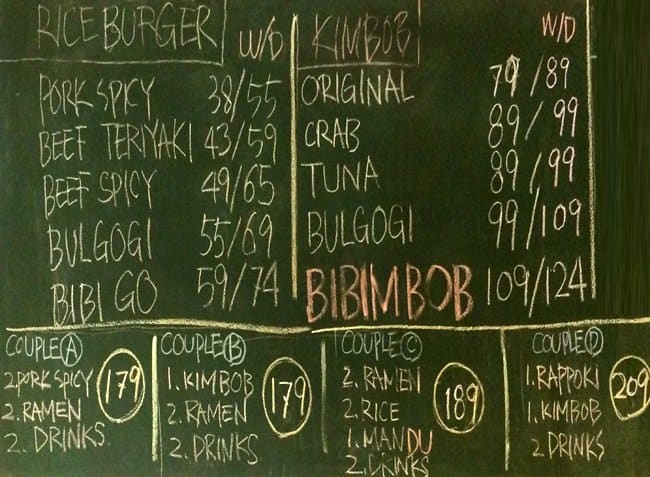 RICE BURGER W/D
PORK SPICY 38/55
BEEF TERIYAKI 43/59
BEEF SPICY 49/65
BULGOGI 55/69
BIBI GO 59/74
KIMBOB W/D
ORIGINAL 79/89
CRAB 89/99
TUNA 89/99
BULGOGI 99/109
BIBIMBOB 109/124
COUPLE A
2. PORK SPICY 179
2. RAMEN
2. DRINKS.
COUPLE B
1. KIMBOB 179
2. RAMEN
2. DRINKS.
COUPLE C
2. RAMEN 189
2. RICE
1. MANDU
2. DRINKS
COUPLE D
1. RAPPOKI 209
1. KIMBOB
2. DRINKS